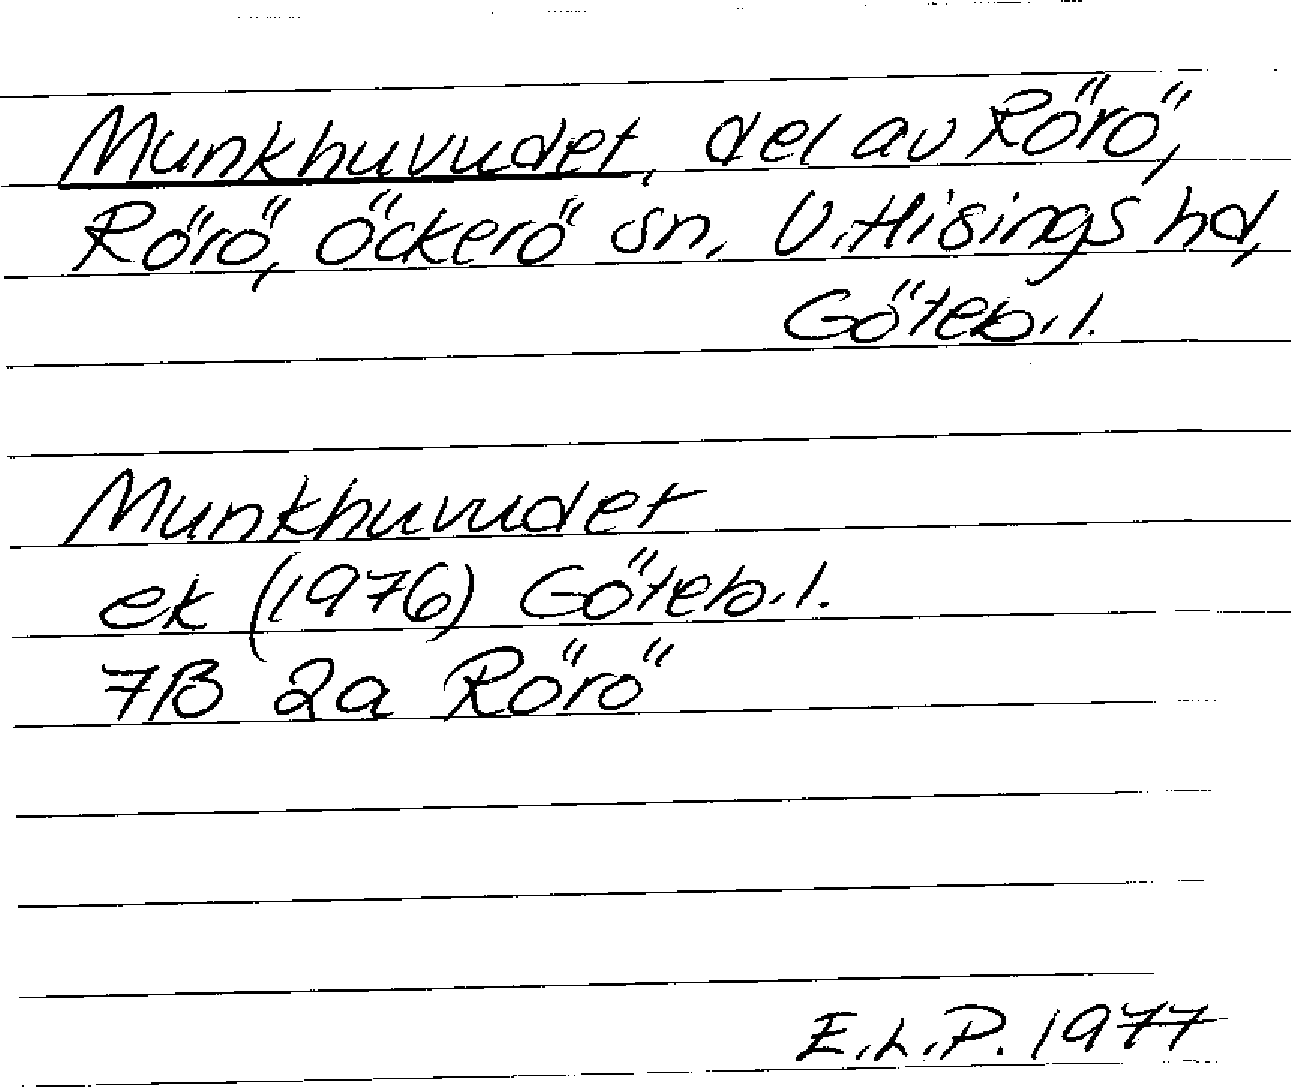 Munkhuvudet, del av Rörö,
Rörö, Öckerö sn, V. Hisings hd,
Göteb.l.
Munkhuvudet
ek (1976) Göteb.l.
7B 2a Rörö
E.L.P. 1977